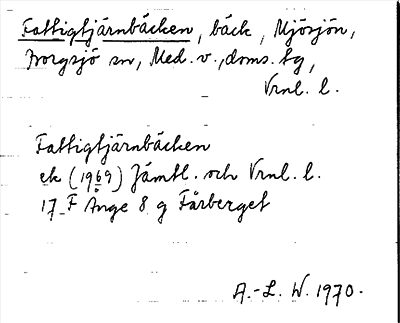 Fattigtjärnbäcken, bäck, Mjösjön,
Borgsjö sn, Med. v., doms. lg,
Vrnl. l.
Fattigtjärnbäcken
ek (1969) Jämtl. och Vrnl. l.
17 F Ange 8 g Fårberget
A.-L. W. 1970.